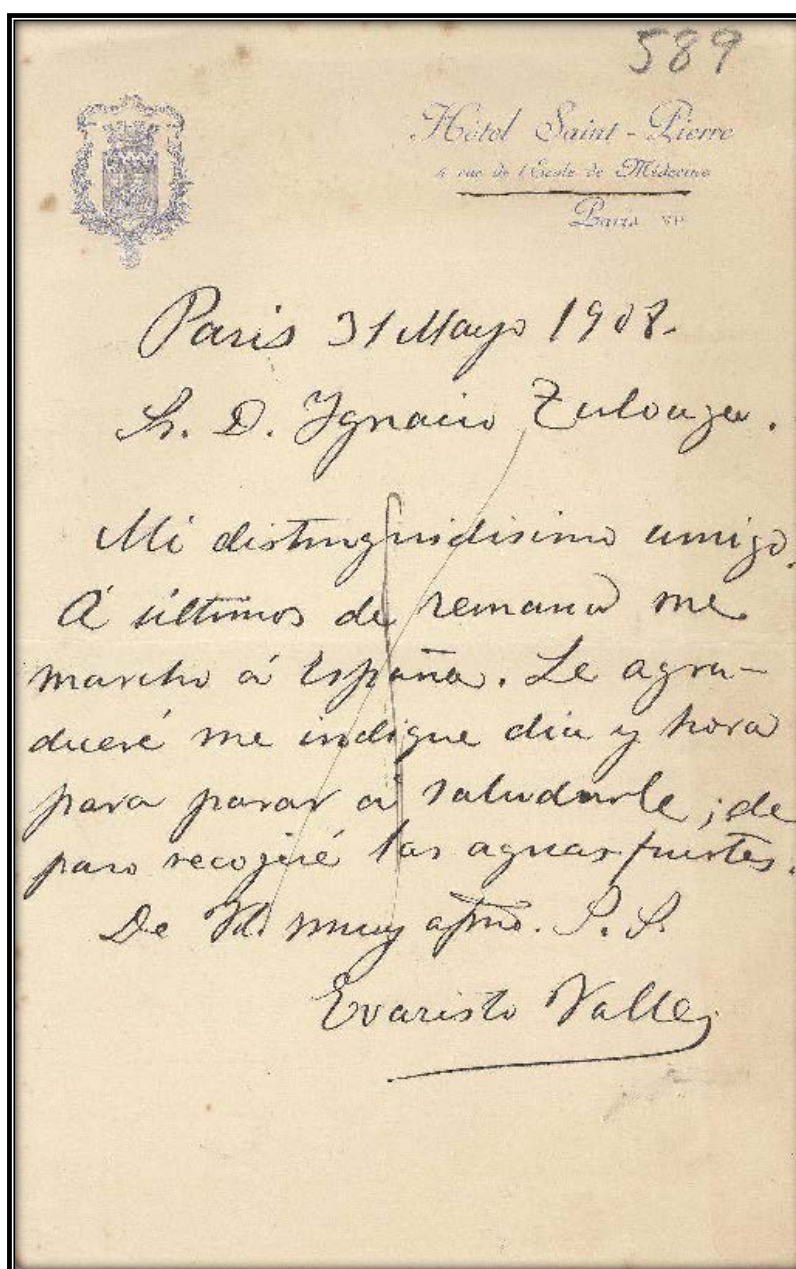 589
Hôtel Saint-Pierre
4 rue de l'École de Médecine
Paris VIe
Paris 31 Mayo 1908.
Sr. D. Ygnacio Zuloaga.
Mi distinguidisimo amigo.
Á últimos de semana me
marcho á España. Le agra-
deceré me indique dia y hora
para pasar á saludarle; de
paso recogiré las aguas fuertes.
De Vd. muy afmo. S. S.
Evaristo Valle